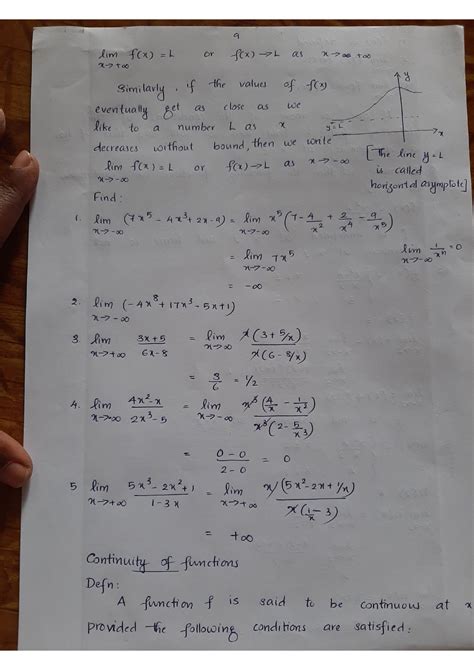 9
lim f(x) = L or f(x) → L as x → ∞ +∞
x→+∞
Similarly, if the values of f(x)
eventually get as close as we
like to a number L as x
decreases without bound, then we write
lim f(x) = L or f(x) → L as x → -∞
x→-∞
y
x
y=L
[The line y=L
is called
horizontal asymptote]
Find:
1. lim x→-∞ (7x⁵ - 4x³ + 2x - 9) = lim x→-∞ x⁵ (7 - 4/x² + 2/x⁴ - 9/x⁵)
= lim x→-∞ 7x⁵
lim x→-∞ 1/xⁿ = 0
= -∞
2. lim x→-∞ (-4x⁸ + 17x³ - 5x + 1)
3. lim x→+∞ (3x+5)/(6x-8) = lim x→∞ x(3 + 5/x)/x(6 - 8/x)
= 3/6 = 1/2
4. lim (4x² - x)/(2x³ - 5) = lim x→-∞ x³(4/x - 1/x²)/x³(2 - 5/x³)
= (0 - 0)/(2 - 0) = 0
5 lim x→+∞ (5x³ - 2x² + 1)/(1 - 3x) = lim x→+∞ x(5x² - 2x + 1/x)/x(1/x - 3)
= +∞
Continuity of functions
Defn:
A function f is said to be continuous at x
provided the following conditions are satisfied: